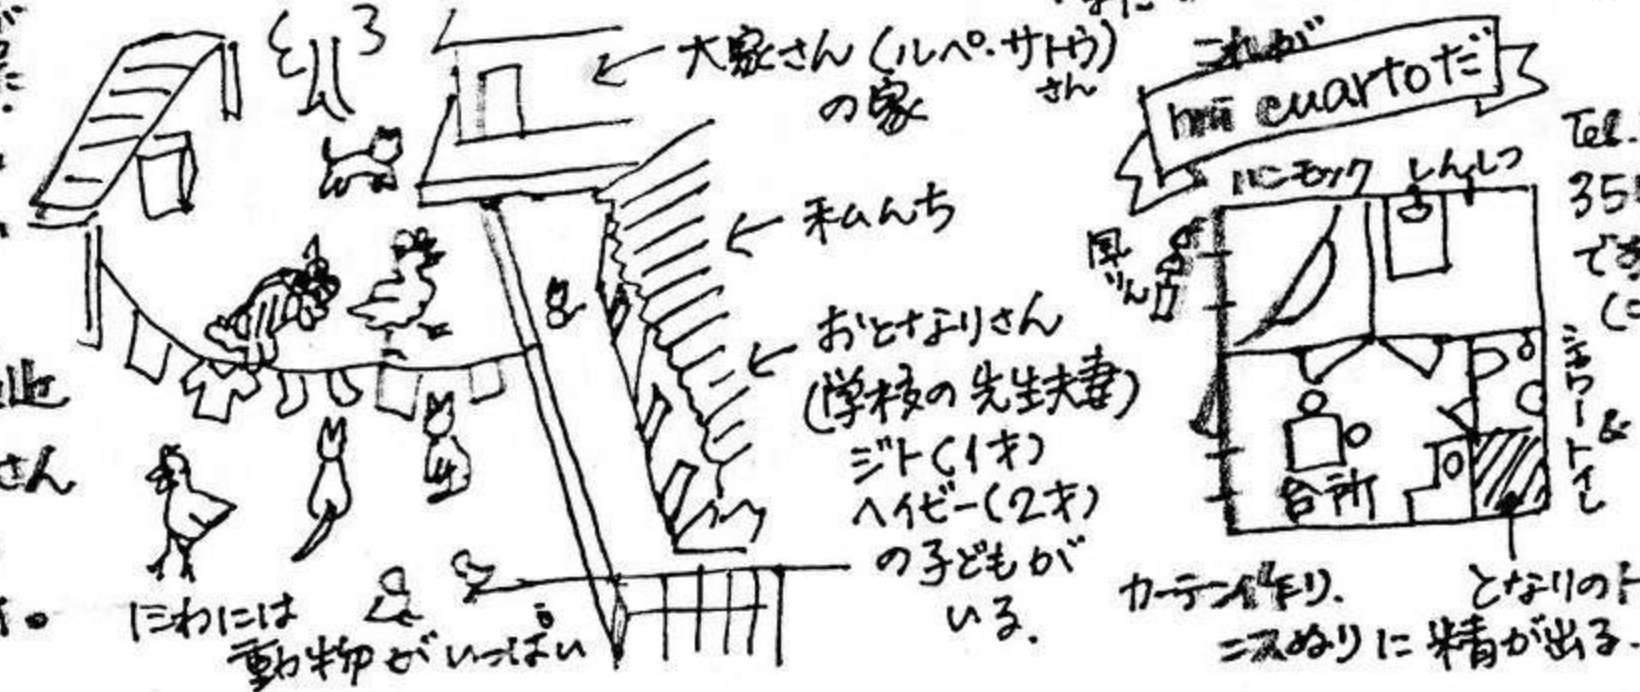 大家さん(ルペ・サトウ)
さん
の家
私んち
おとなりさん
(学校の先生夫妻)
ジト(1才)
ヘイビー(2才)
の子どもが
いる.
にわには
動物がいっぱい
これが
mi cuartoだ
ハンモック しんしつ
風りん
台所
シャワー&トイレ
カーテン作り.
ニスぬりに精が出る.
となりのト
Tel.
35
です
さん